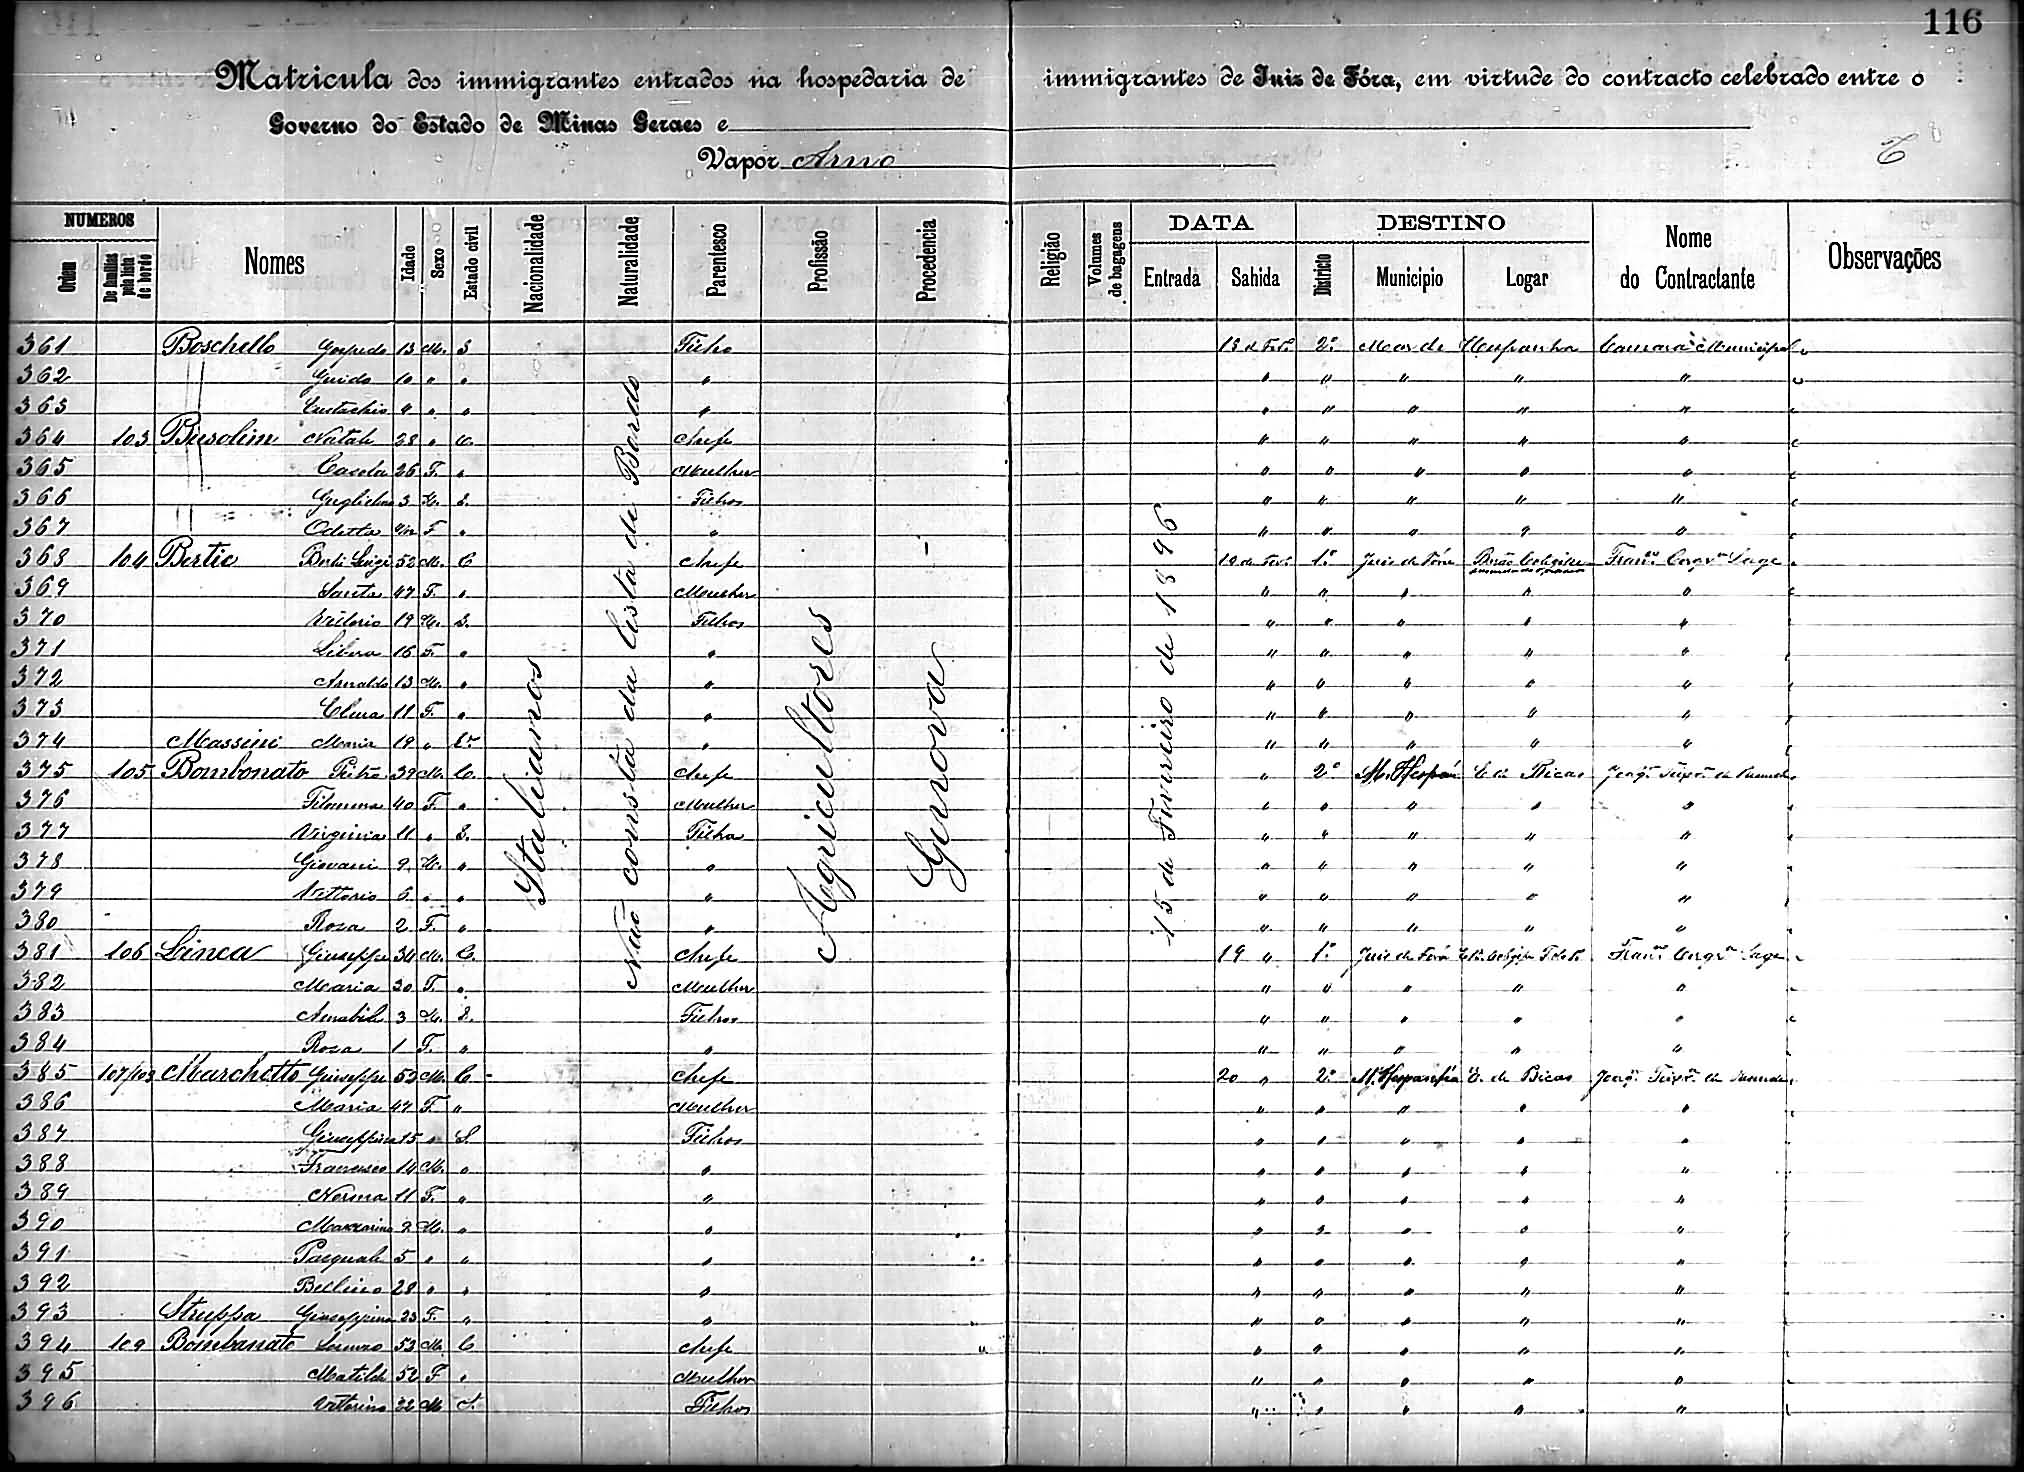 116
Matricula dos immigrantes entrados na hospedaria de immigrantes de Juiz de Fóra, em virtude do contracto celebrado entre o
Governo do Estado de Minas Geraes e
Vapor Arno
NUMEROS DATA DESTINO
Ordem De familias pela lista de bordo Nomes Idade Sexo Estado civil Nacionalidade Naturalidade Parentesco Profissão Procedencia Religião Volumes de bagagens Entrada Sahida Districto Municipio Logar Nome do Contractante Observações
Italianos
Não consta da lista de Bordo
Agricultores
Genova
15 de Fevereiro de 1896
361 Boschello Gofredo 13 M. S Filho 2º Mar de Hespanha Camara Municipal
362 Guido 10 " " " " " " " "
363 Eustachio " " " " " " " "
364 103 Natale 28 " Chefe " " " " "
365 26 F. " Mulher " " " " "
366 3 M. S. Filhos " " " " "
367 Odetta F " " " " " " "
368 104 Bertie Luigi 52 M. C Chefe 1º Juiz de Fóra
369 Santa 47 F. " Mulher " " " " "
370 Vittorio 19 M. S. Filhos " " " " "
371 Libera 16 F. " " " " " " "
372 Arnaldo 13 M. " " " " " " "
373 11 F. " " " " " " "
374 Massini Maria 19 " " " " " " "
375 105 Bombonato Pietro 39 M. C. Chefe " 2º M. Hespanha E. de Bicas
376 Filomena 40 F. " Mulher " " " " "
377 Virginia 11 " S. Filha " " " " "
378 Giovani 9 M. " " " " " " "
379 Vittorio 6 " " " " " " " "
380 Rosa 2 F. " " " " " " "
381 106 Linea Giuseppe 34 M. C. Chefe 19 " 1º Juiz de Fóra
382 Maria 30 F. " Mulher " " " " "
383 Amabile 3 M. S. Filhos " " " " "
384 Rosa 1 F. " " " " " " "
385 Marchetto Giuseppe 52 M. C Chefe 20 " 2º M. Hespanha E. de Bicas
386 Maria 47 F. " Mulher " " " " "
387 Giuseppina 15 " S. Filhos " " " " "
388 Francesco 14 M. " " " " " " "
389 Norma 11 F. " " " " " " "
390 9 M. " " " " " " "
391 Pasquale 5 " " " " " " " "
392 Bellino 28 " " " " " " " "
393 Struppa Giuseppina 23 F. " " " " " " "
394 109 Bombanato 53 M. C Chefe " " " " "
395 Matilde 52 F " Mulher " " " " "
396 Vittorino 22 M S. Filhos " " " " "